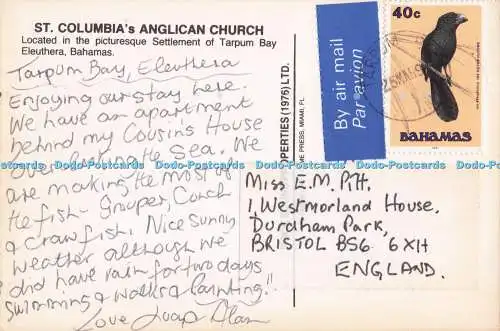 ST. COLUMBIA's ANGLICAN CHURCH
Located in the picturesque Settlement of Tarpum Bay
Eleuthera, Bahamas.
Tarpum Bay, Eleuthera
Enjoying our stay here.
We have an apartment
behind my Cousins House
overlooking the Sea. We
are making the most of
the fish - Grouper, Conch
& Crawfish. Nice Sunny
weather although we
did have rain for two days
Swimming & walks & Painting!!
Love Alan
PROPERTIES (1976) LTD.
PRESS, MIAMI, FL.
By air mail
Par avion
40c
BAHAMAS
Miss E.M. Pitt.
1, Westmorland House,
Durdham Park,
BRISTOL BS6 6XH
ENGLAND.
Dodo-Postcards Dodo-Postcards Dodo-Postcards Dodo-Postcards Dodo-Postcards Dodo-Postcards